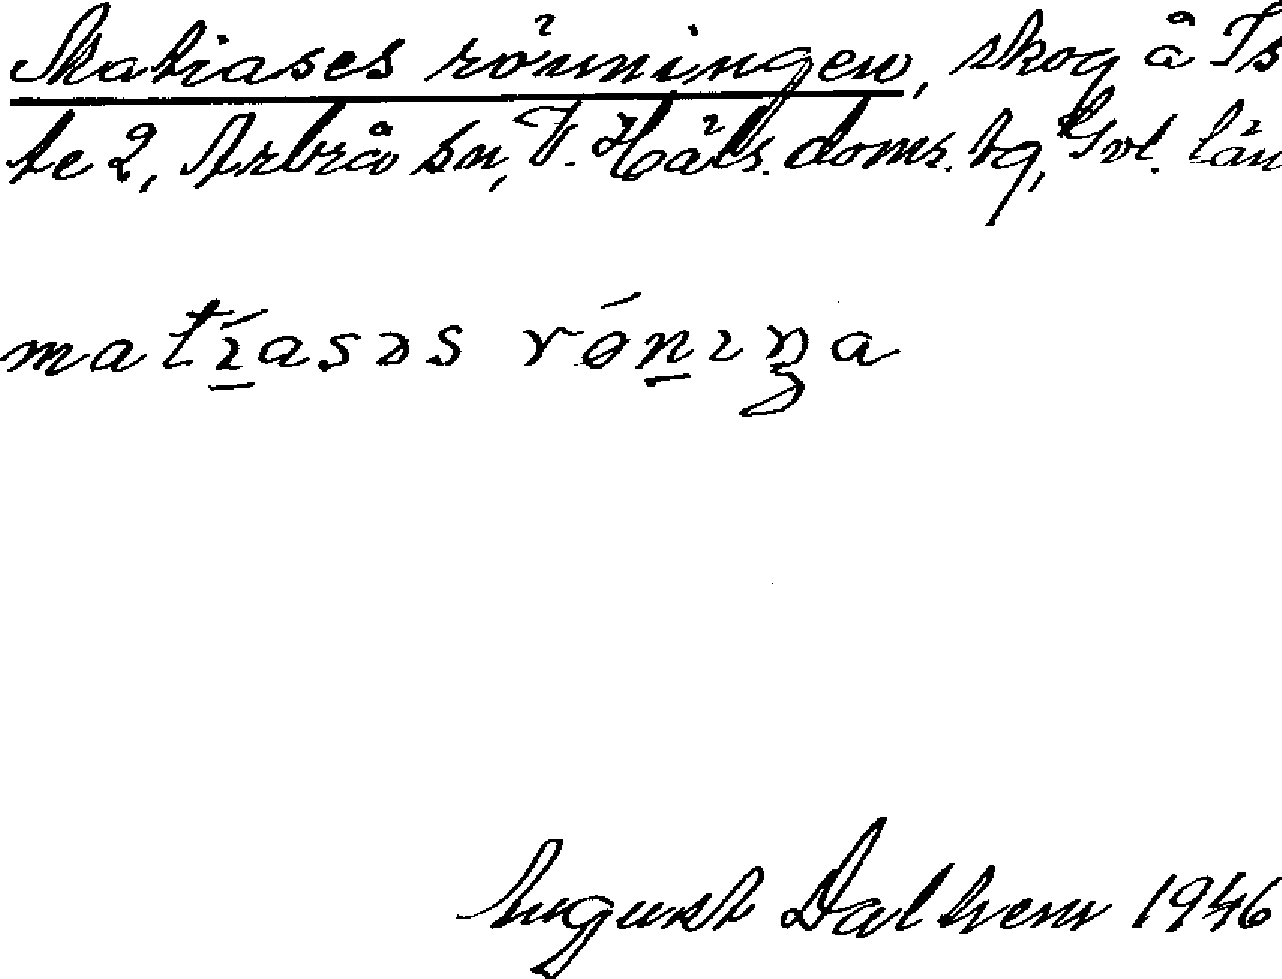 Matiases rönningen, skog å Is
te 2, Arbrå sn, V. Häls. doms. tg, Gvl. län
matíasəs rǿnıŋa
August Dalhem 1946